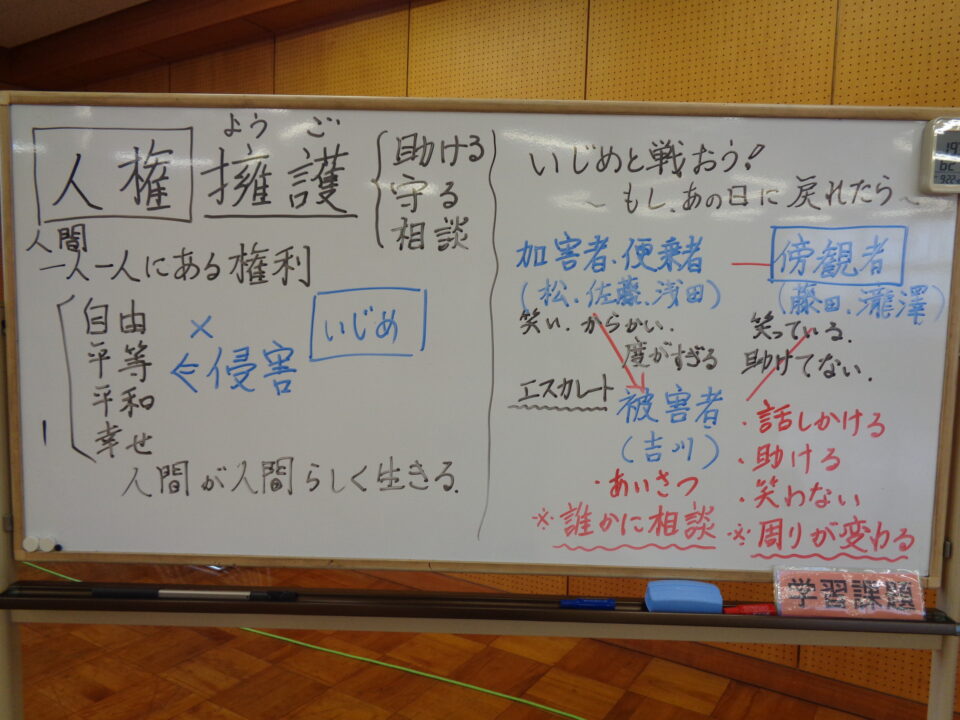 よう ご
人権擁護
助ける
守る
相談
人間
一人一人にある権利
自由
平等
平和
幸せ
×
⇐侵害
いじめ
人間が人間らしく生きる.
いじめと戦おう!
~もし、あの日に戻れたら~
加害者、便乗者
(松、佐藤、浅田)
傍観者
(藤田、瀧澤)
笑い、からかい.
度がすぎる
笑っている.
助けてない.
エスカレート
被害者
(吉川)
・あいさつ
※誰かに相談
・話しかける
・助ける
・笑わない
※周りが変わる
学習課題